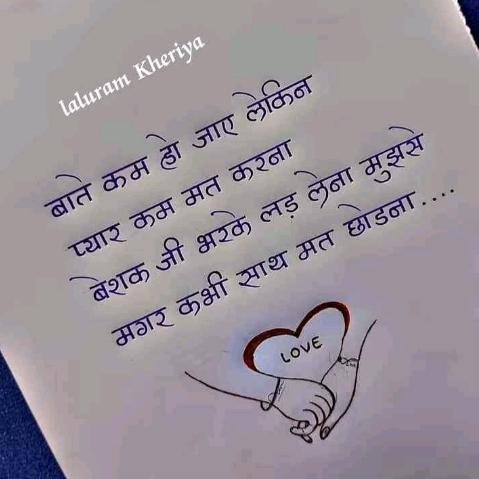 laluram Kheriya
बाते कम हो जाए लेकिन
प्यार कम मत करना
बेशक जी भरके लड़ लेना मुझसे
मगर कभी साथ मत छोडना....
LOVE